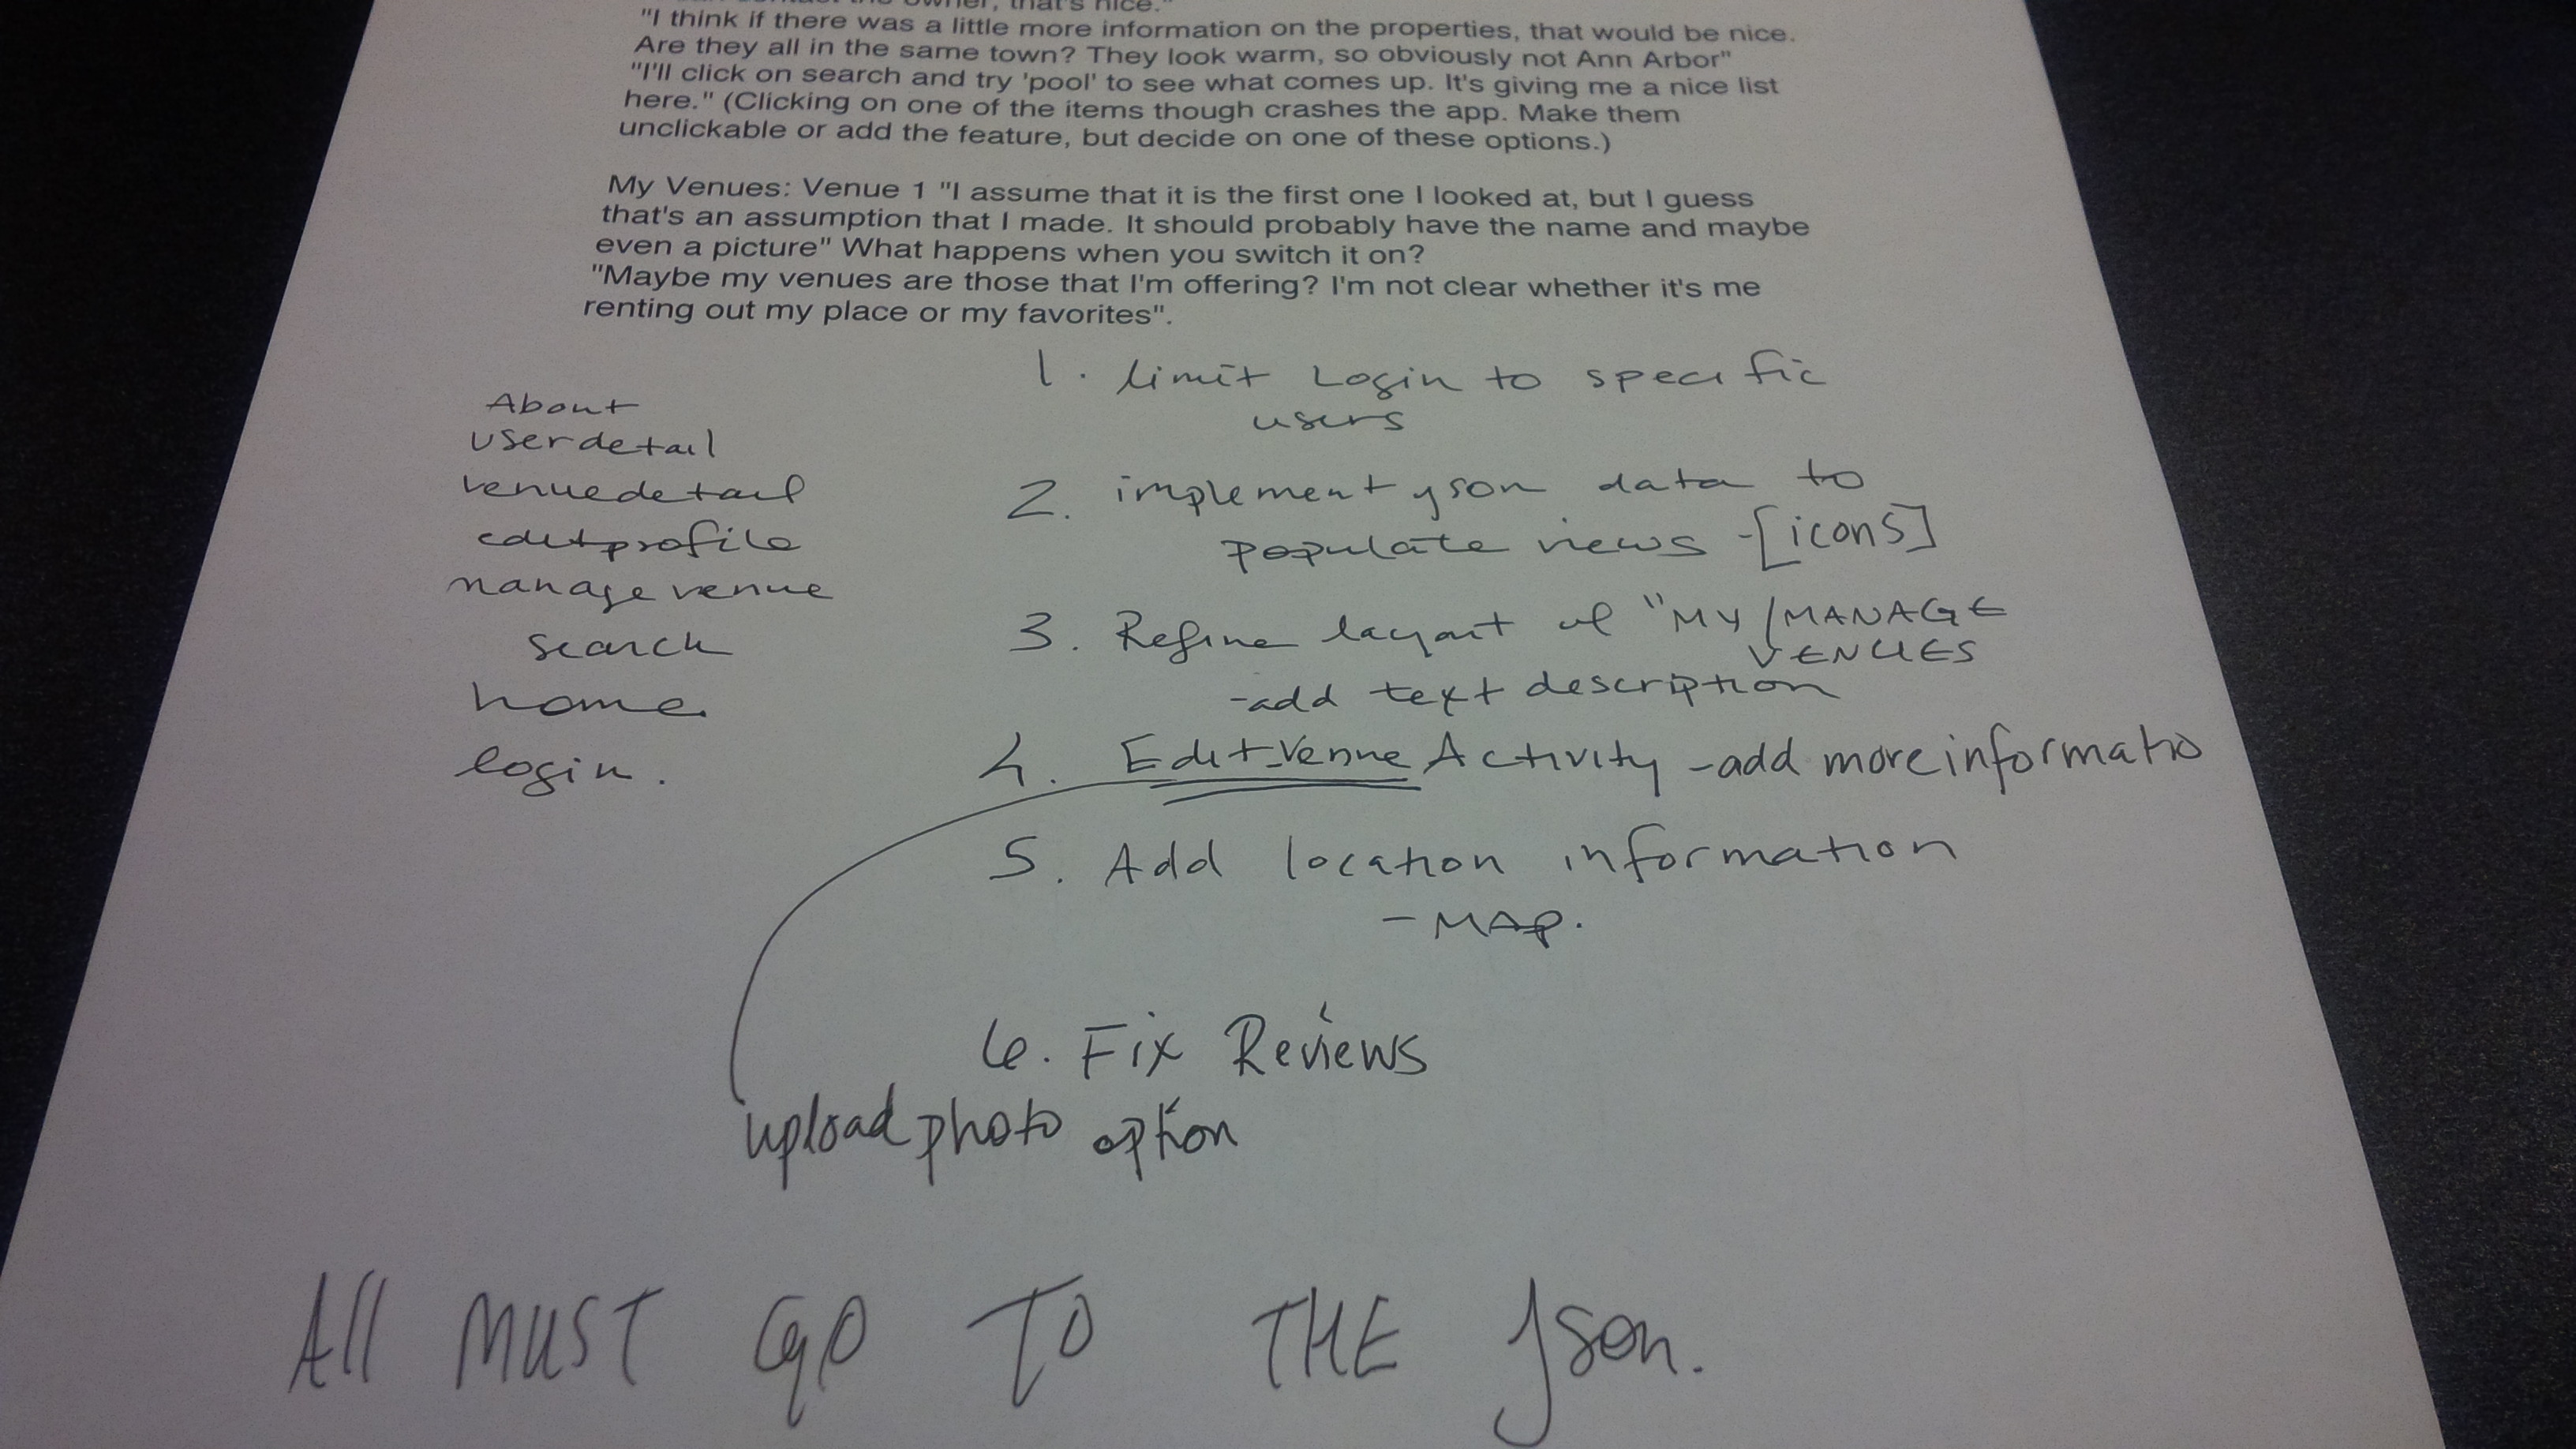 owner, that's nice."
"I think if there was a little more information on the properties, that would be nice.
Are they all in the same town? They look warm, so obviously not Ann Arbor"
"I'll click on search and try 'pool' to see what comes up. It's giving me a nice list
here." (Clicking on one of the items though crashes the app. Make them
unclickable or add the feature, but decide on one of these options.)
My Venues: Venue 1 "I assume that it is the first one I looked at, but I guess
that's an assumption that I made. It should probably have the name and maybe
even a picture" What happens when you switch it on?
"Maybe my venues are those that I'm offering? I'm not clear whether it's me
renting out my place or my favorites".
About
userdetail
venuedetail
editprofile
manage venue
search
home
login.
1. limit Login to specific
users
2. implement json data to
populate views -[icons]
3. Refine layout of "MY/MANAGE
VENUES
-add text description
4. Edit_Venue Activity -add more informatio
5. Add location information
- MAP.
6. Fix Reviews
upload photo option
All MUST GO TO THE Json.